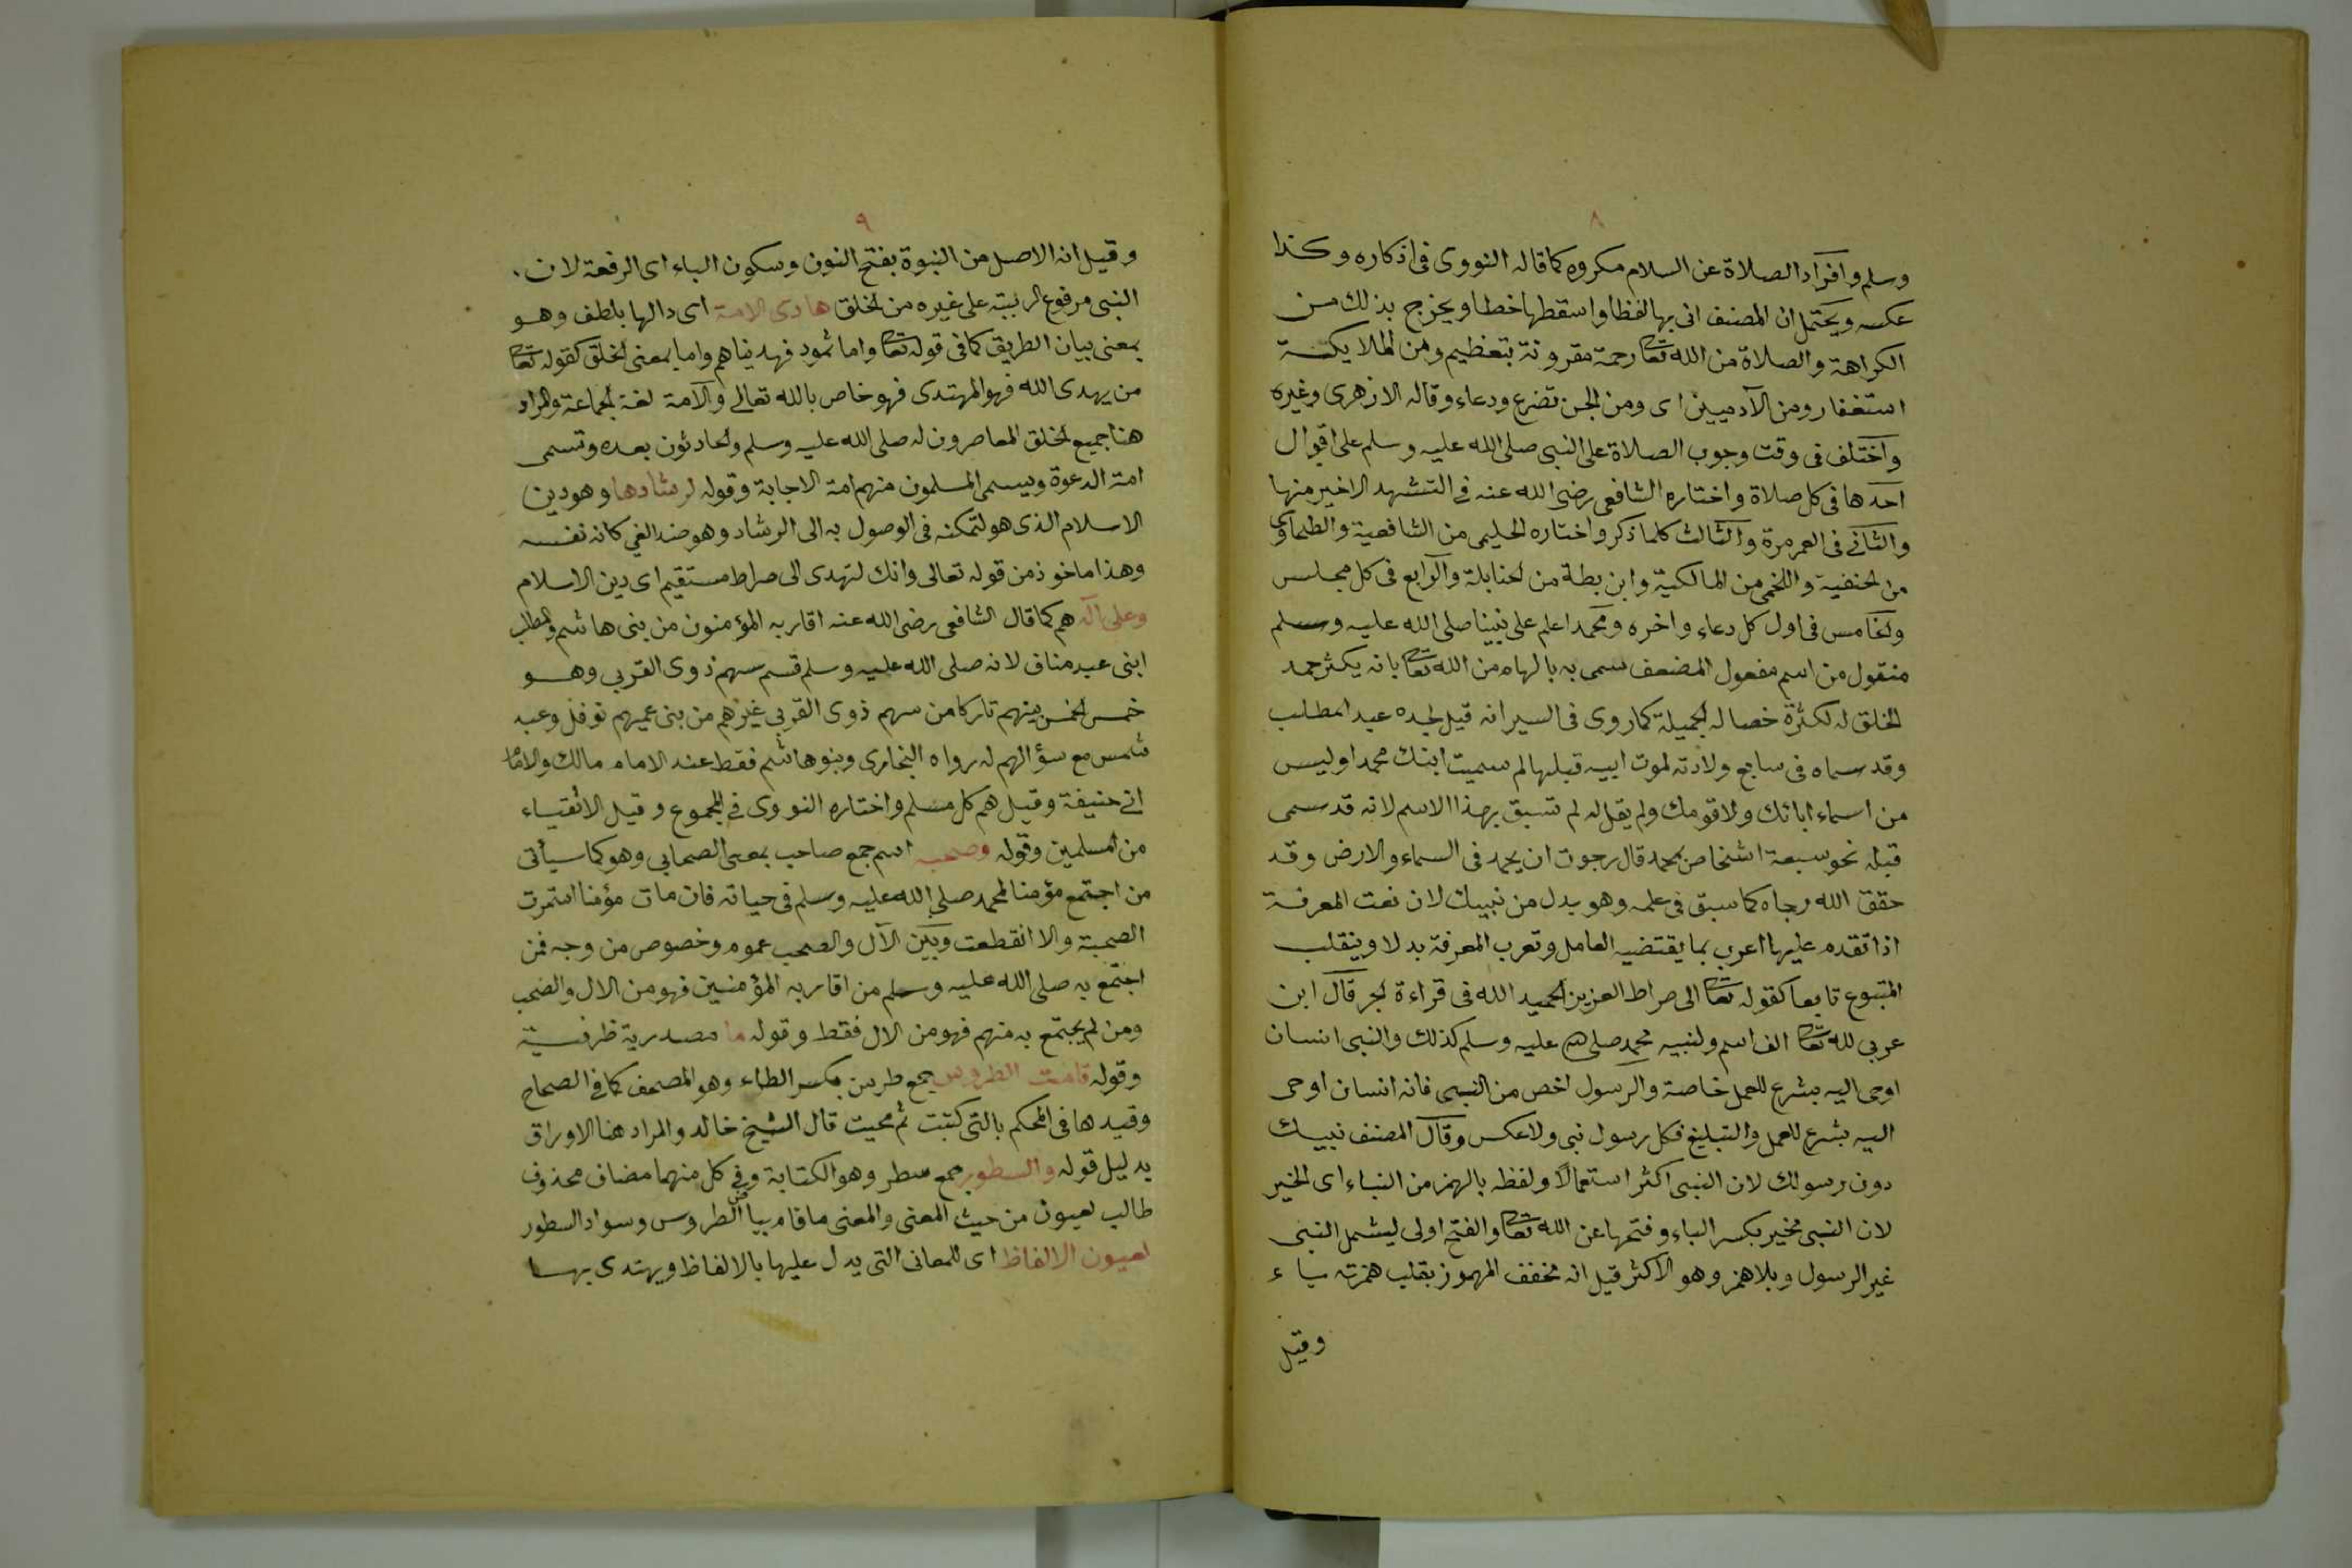 ٨
وسلم وافراد الصلاة عن السلام مكروه كما قاله النووى فى اذكاره وكذا
عكسه ويحتمل ان المصنف اتى بها لفظا واسقطها خطا ويخرج بذلك من
الكراهة والصلاة من الله تعا رحمة مقرونة بتعظيم ومن الملايكة
استغفار ومن الآدميين اى ومن الجن تضرع ودعاء وقاله الازهرى وغيره
واختلف فى وقت وجوب الصلاة على النبى صلى الله عليه وسلم على اقوال
احدها فى كل صلاة واختاره الشافعى رضى الله عنه فى التشهد الاخير منها
والثانى فى العمر مرة والثالث كلما ذكر واختاره الحليمى من الشافعية والطحاوى
من الحنفية واللخمى من المالكية وابن بطة من الحنابلة والرابع فى كل مجلس
والخامس فى اول كل دعاء واخره ومحمد اعلم على نبينا صلى الله عليه وسلم
منقول من اسم مفعول المضعف سمى به بالهام من الله تعا بانه يكثر حمد
الخلق له لكثرة خصاله الجميلة كما روى فى السير انه قيل لجده عبد المطلب
وقد سماه فى سابع ولادته لموت ابيه قبلها لم سميت ابنك محمدا وليس
من اسماء ابائك ولا قومك ولم يقل له لم تسبق بهذا الاسم لانه قد سمى
قبله نحو سبعة اشخاص بمحمد قال رجوت ان يحمد فى السماء والارض وقد
حقق الله رجاه كما سبق فى علمه وهو بدل من نبيك لان نعت المعرفة
اذا تقدم عليها اعرب بما يقتضيه العامل وتعرب المعرفة بدلا وينقلب
المتبوع تابعا كقوله تعا الى صراط العزيز الحميد الله فى قراءة الجر قال ابن
عربى لله تعا الف اسم ولنبيه محمد صلى الله عليه وسلم كذلك والنبى انسان
اوحى اليه بشرع للعمل خاصة والرسول اخص من النبى فانه انسان اوحى
اليه بشرع للعمل والتبليغ فكل رسول نبى ولا عكس وقال المصنف نبيك
دون رسولك لان النبى اكثر استعمالا ولفظه بالهمز من النباء اى الخبر
لان النبى مخبر بكسر الباء وفتحها عن الله تعا والفتح اولى ليشمل النبى
غير الرسول وبلا همز وهو الاكثر قيل انه مخفف المهموز بقلب همزته ياء
وقيل
٩
وقيل انه الاصل من النبوة بفتح النون وسكون الباء اى الرفعة لان
النبى مرفوع الرتبة على غيره من الخلق هادى الامة اى دالها بلطف وهو
بمعنى بيان الطريق كما فى قوله تعا واما ثمود فهديناهم واما بمعنى الخلق كقوله تعا
من يهدى الله فهو المهتدى فهو خاص بالله تعالى والامة لغة الجماعة والمراد
هنا جميع الخلق المعاصرون له صلى الله عليه وسلم والحادثون بعده وتسمى
امة الدعوة ويسمى المسلمون منهم امة الاجابة وقوله لرشادها وهو دين
الاسلام الذى هو لتمكنه فى الوصول به الى الرشاد وهو ضد الغى كانه نفسه
وهذا ماخوذ من قوله تعالى وانك لتهدى الى صراط مستقيم اى دين الاسلام
وعلى آله هم كما قال الشافعى رضى الله عنه اقاربه المؤمنون من بنى هاشم والمطلب
ابنى عبد مناف لانه صلى الله عليه وسلم قسم سهم ذوى القربى وهو
خمس الخمس بينهم تاركا من سهم ذوى القربى غيرهم من بنى عميهم نوفل وعبد
شمس مع سؤالهم له رواه البخارى وبنو هاشم فقط عند الامام مالك والامام
ابى حنيفة وقيل هم كل مسلم واختاره النووى فى المجموع وقيل الاتقياء
من المسلمين وقوله وصحبه اسم جمع صاحب بمعنى الصحابى وهو كما سيأتى
من اجتمع مؤمنا لمحمد صلى الله عليه وسلم فى حياته فان مات مؤمنا استمرت
الصحبة والا انقطعت وبين الآل والصحب عموم وخصوص من وجه فمن
اجتمع به صلى الله عليه وسلم من اقاربه المؤمنين فهو من الال والصحب
ومن لم يجتمع به منهم فهو من الال فقط وقوله ما مصدرية ظرفية
وقوله قامت الطروس جمع طرس بكسر الطاء وهو المصحف كما فى الصحاح
وقيدها فى المحكم بالتى كتبت ثم محيت قال الشيخ خالد والمراد هنا الاوراق
بدليل قوله والسطور جمع سطر وهو الكتابة وفى كل منهما مضاف محذوف
طالب لعيون من حيث المعنى والمعنى ما قام بياض الطروس وسواد السطور
لعيون الالفاظ اى للمعانى التى يدل عليها بالالفاظ ويهتدى بها